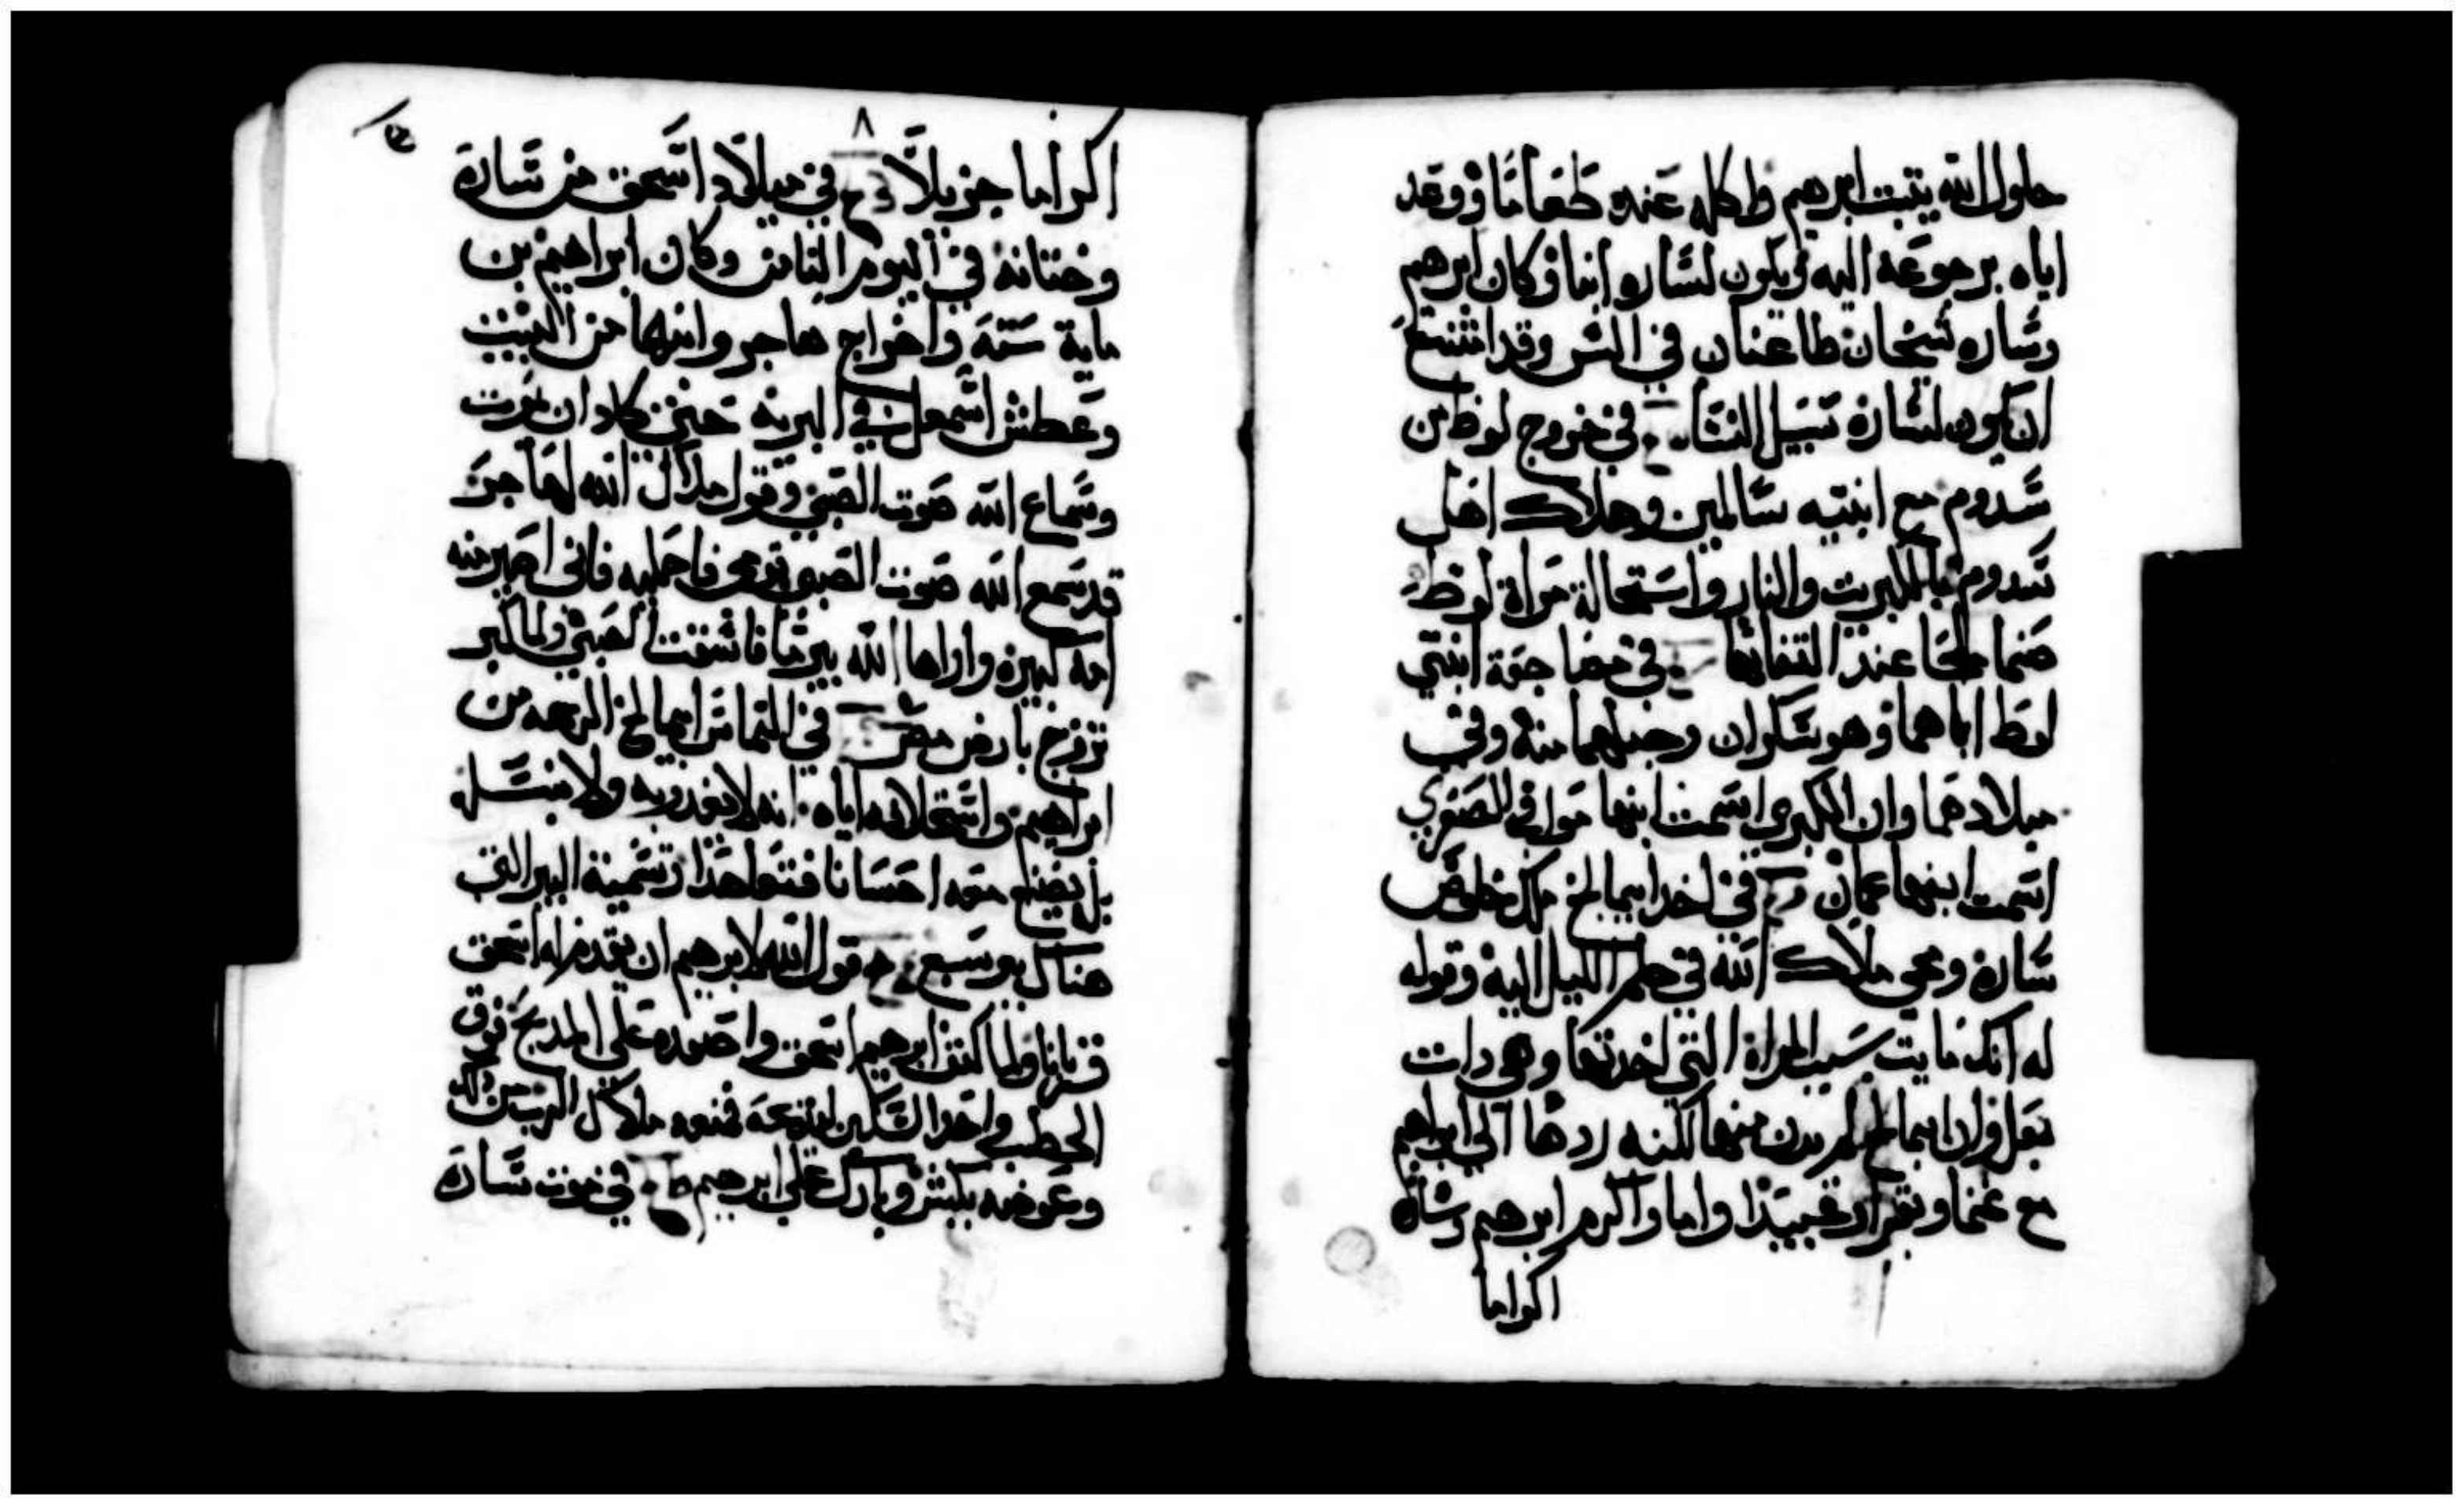 حلول الله ببيت ابرهيم واكله عنده طعاما ووعد
اياه برجوعه اليه ويكون لساره ابنا وكان ابرهيم
وساره شيخان طاعنان في السن وقد امتنع
ان يكون لسارة سبيل النسا في خروج لوط من
سدوم مع ابنتيه سالمين وهلاك اهل
سدوم بالكبريت والنار واستحالة مراة لوط
صنما ملحا عند التفاتها في مضاجعة ابنتي
لوط اباهما وهو سكران وحبلهما منه وفي
ميلادهما وان الكبري اسمت ابنها مواب والصغري
اسمت ابنها عمان في اخد ابيمالخ ملك خلوص
سارة ومجي ملاك الله في حلم الليل اليه وقوله
له انك مايت بسبب المراة التي اخدتها وهي دات
بعل وان ابيمالخ لم يدن منها لكنه ردها الي ابراهيم
مع غنما وبقرا وعبيدا واما واكرم ابرهيم وساره
اكراما
٨
اكراما جزيلا في ميلاد اسحق من سارة
وختانه في اليوم الثامن وكان ابراهيم بن
ماية سنة واخراج هاجر وابنها من البيت
وعطش اسمعيل في البرية حتي كاد ان يموت
وسماع الله صوت الصبي وقول ملاك الله لهاجر
قد سمع الله صوت الصبي قومي فاحمليه فاني اصير منه
امه كبيرة واراها الله بير ما فاسقت الصبي ولما كبر
تزوج بارض مصر في التماس ابيمالخ الرحمه من
ابراهيم واستحلافه اياه انه لا يغدر به ولا بنسله
بل يصنع معه احسانا فتعاهدا وتسمية البير التي
هناك بير سبع قول الله لابرهيم ان يقدم له اسحق
قربانا ولما كتف ابرهيم اسحق واصعده علي المدبح فوق
الحطب واخد السكين ليدبحه فمنعه ملاك الرب من دلك
وعوضه بكبش وبارك علي ابرهيم في موت سارة